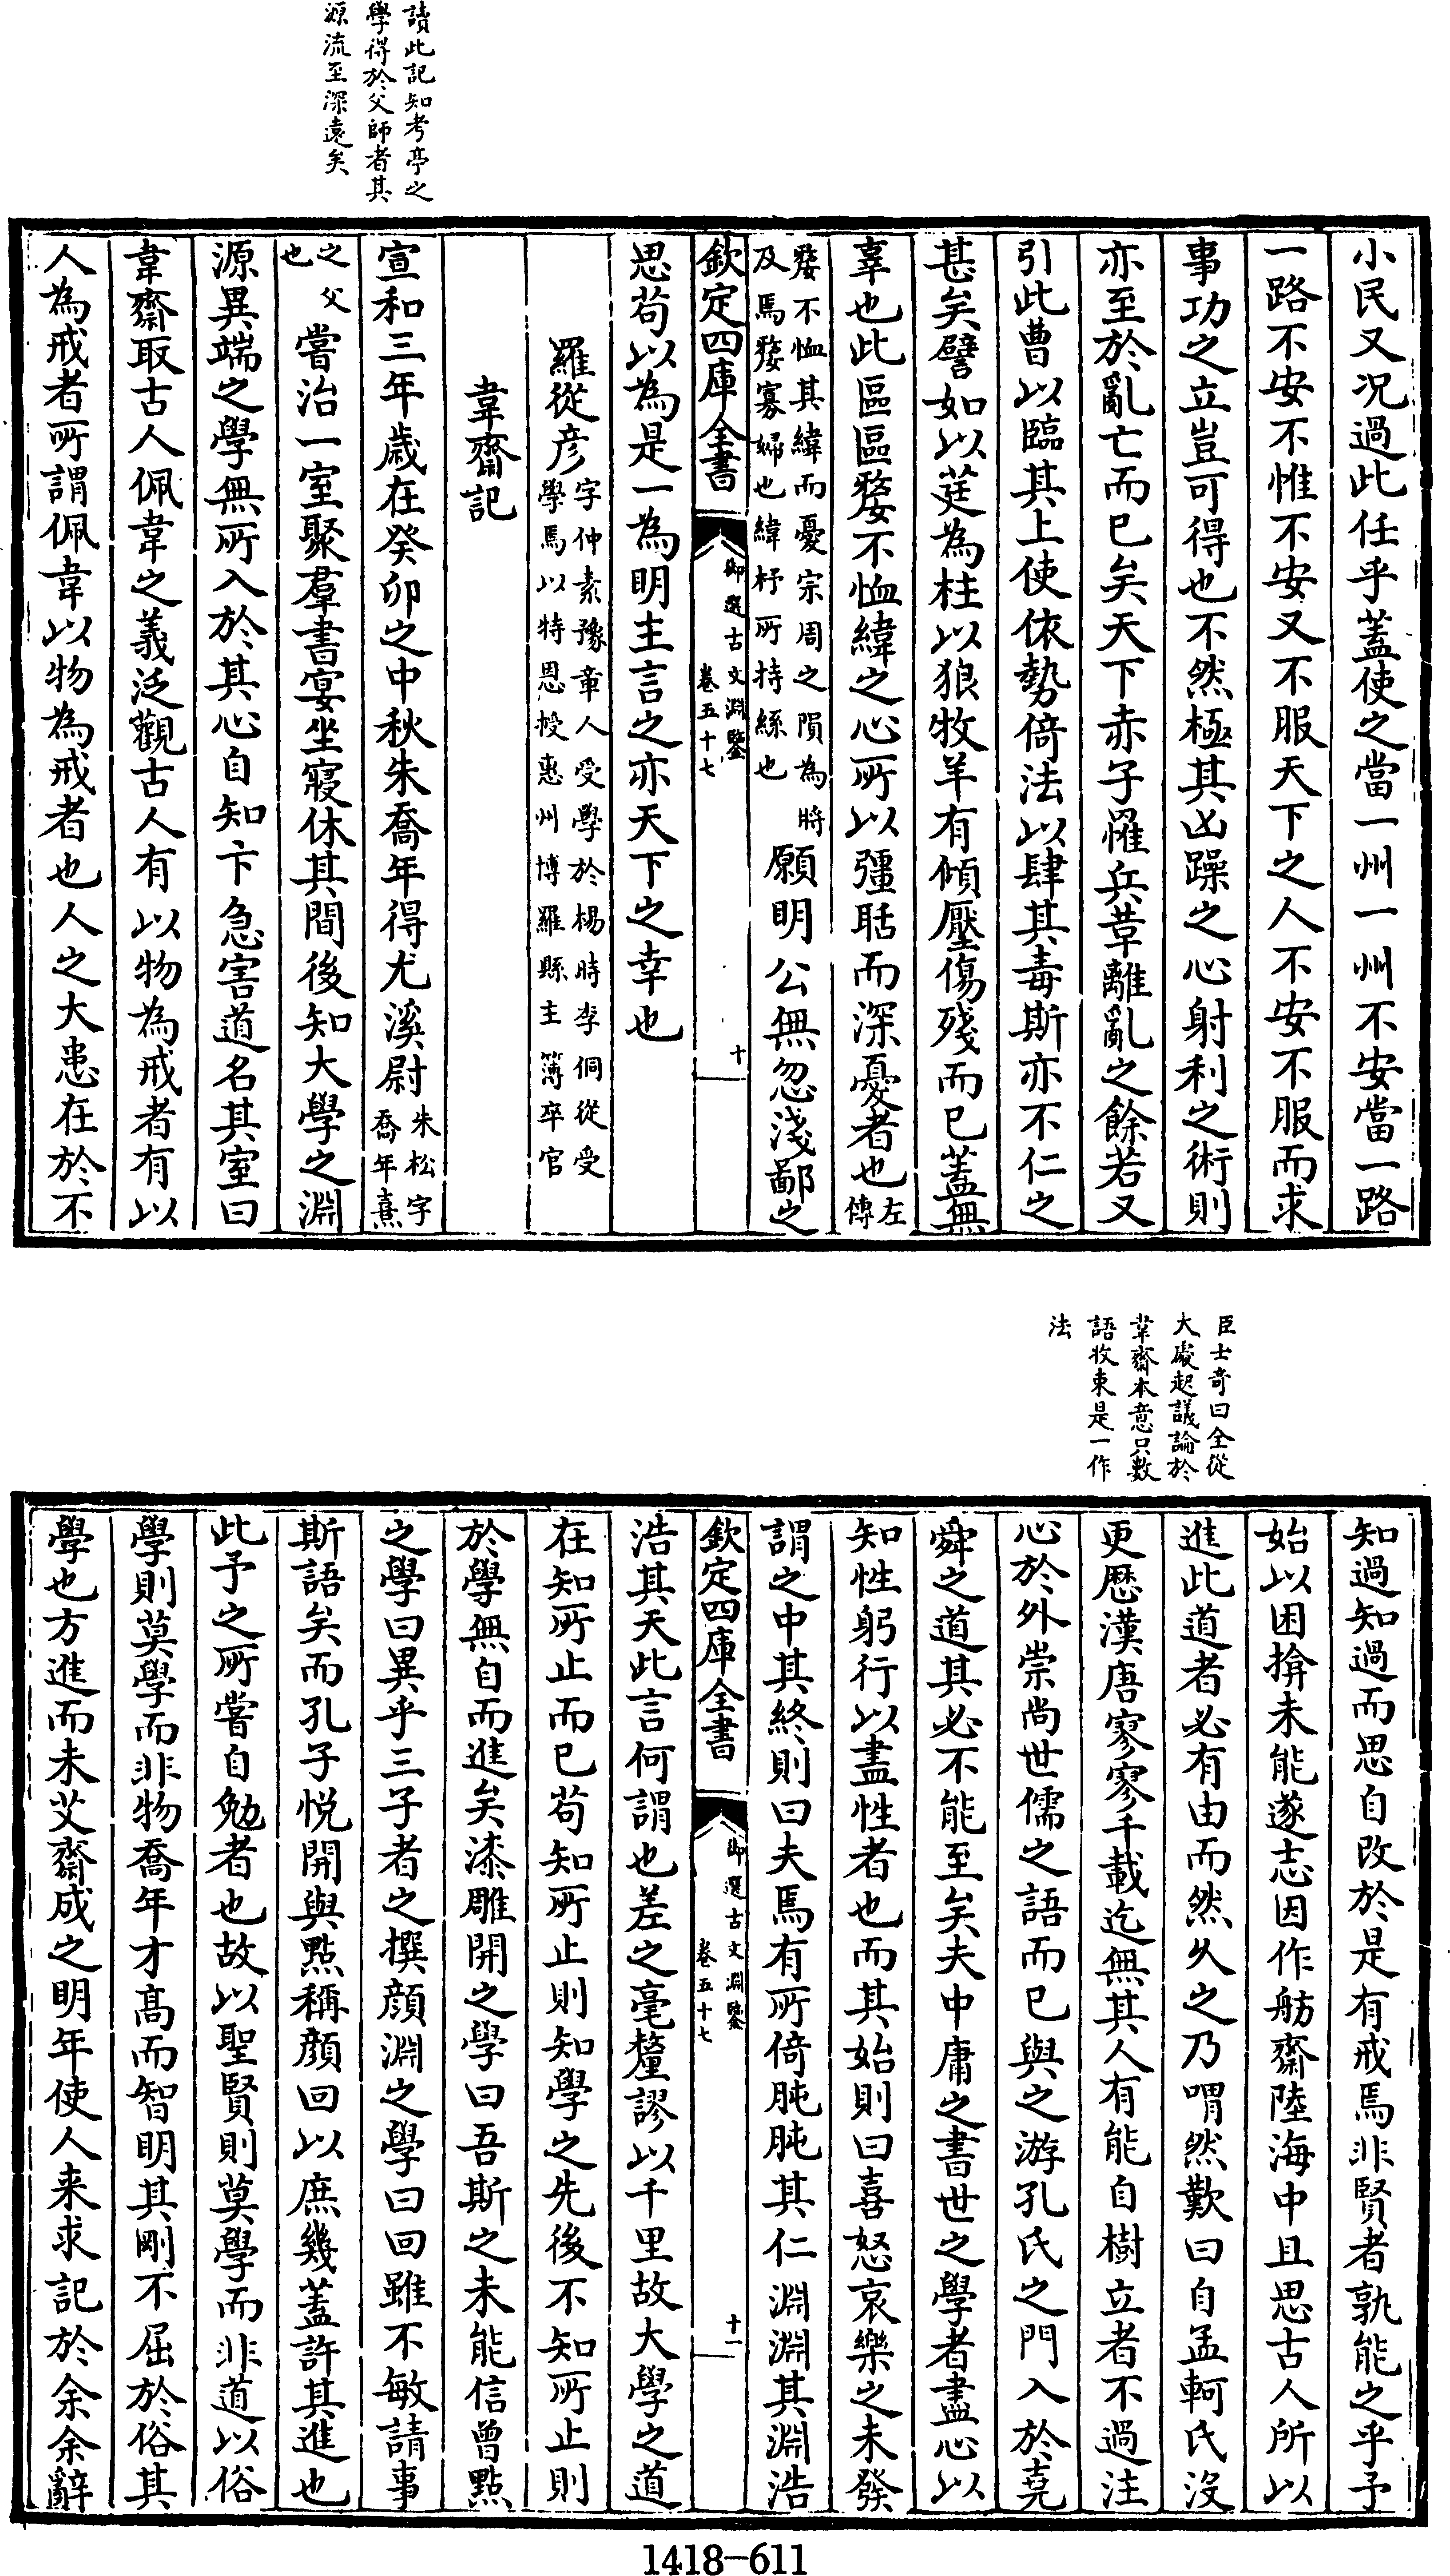 讀此記知考亭之
學得於父師者其
源流至深遠矣
小民又况過此任乎蓋使之當一州一州不安當一路
一路不安不惟不安又不服天下之人不安不服而求
事功之立豈可得也不然極其凶躁之心射利之術則
亦至於亂亡而已矣天下赤子罹兵革離亂之餘若又
引此曹以臨其上使依勢倚法以肆其毒斯亦不仁之
甚矣譬如以莛為柱以狼牧羊有傾壓傷殘而已蓋無
辜也此區區嫠不恤緯之心所以彊聒而深憂者也左
傳
嫠不恤其緯而憂宗周之隕為將
及焉嫠寡婦也緯杼所持絲也願明公無忽淺鄙之
欽定四庫全書
御選古文淵鑒
卷五十七
十
思苟以為是一為明主言之亦天下之幸也
羅從彦字仲素豫章人受學於楊時李侗從受
學焉以特恩授惠州博羅縣主簿卒官
韋齋記
宣和三年歲在癸卯之中秋朱喬年得尤溪尉朱松字
喬年熹
之父
也嘗治一室聚羣書宴坐寢休其間後知大學之淵
源異端之學無所入於其心自知卞急害道名其室曰
韋齋取古人佩韋之義泛觀古人有以物為戒者有以
人為戒者所謂佩韋以物為戒者也人之大患在於不
臣士奇曰全從
大處起議論於
韋齋本意只數
語收束是一作
法
知過知過而思自改於是有戒焉非賢者孰能之乎予
始以困揜未能遂志因作舫齋陸海中且思古人所以
進此道者必有由而然久之乃喟然歎曰自孟軻氏沒
更歷漢唐寥寥千載迄無其人有能自樹立者不過注
心於外崇尚世儒之語而已與之游孔氏之門入於堯
舜之道其必不能至矣夫中庸之書世之學者盡心以
知性躬行以盡性者也而其始則曰喜怒哀樂之未發
謂之中其終則曰夫焉有所倚肫肫其仁淵淵其淵浩
欽定四庫全書
御選古文淵鑒
卷五十七
十一
浩其天此言何謂也差之毫釐謬以千里故大學之道
在知所止而已苟知所止則知學之先後不知所止則
於學無自而進矣漆雕開之學曰吾斯之未能信曾點
之學曰異乎三子者之撰顔淵之學曰回雖不敏請事
斯語矣而孔子悅開與點稱顔回以庶幾蓋許其進也
此予之所嘗自勉者也故以聖賢則莫學而非道以俗
學則莫學而非物喬年才高而智明其剛不屈於俗其
學也方進而未艾齋成之明年使人来求記於余余辭
1418-611